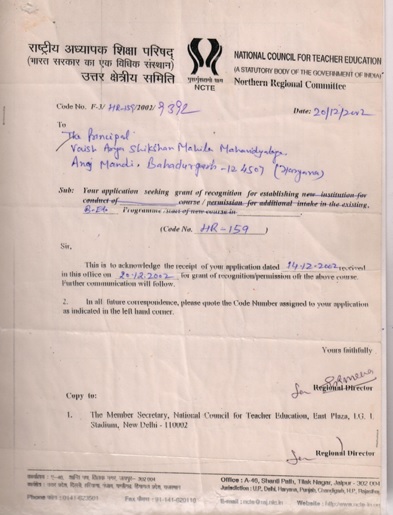 राष्ट्रीय अध्यापक शिक्षा परिषद्
(भारत सरकार का एक विधिक संस्थान)
उत्तर क्षेत्रीय समिति
NCTE
NATIONAL COUNCIL FOR TEACHER EDUCATION
(A STATUTORY BODY OF THE GOVERNMENT OF INDIA)
Northern Regional Committee
Code No. F-3/ HR-159/2002/ 9392
Date: 20/12/2002
To
The Principal
Vaish Arya Shikshan Mahila Mahavidyalaya
Anaj Mandi, Bahadurgarh -124507 (Haryana)
Sub: Your application seeking grant of recognition for establishing new institution for
conduct of course / permission for additional intake in the existing,
B.Ed. Programme start of new course in
(Code No. HR-159)
Sir,
This is to acknowledge the receipt of your application dated 14-12-2002 received
in this office on 20-12-2002 for grant of recognition/permission oft the above course.
Further communication will follow.
2. In all future correspondence, please quote the Code Number assigned to your application
as indicated in the left hand corner.
Yours faithfully
Regional Director
Copy to:
1. The Member Secretary, National Council for Teacher Education, East Plaza, I.G. I.
Stadium, New Delhi - 110002
Regional Director
Office : A-46, Shanti Path, Tilak Nagar, Jaipur - 302 004
Jurisdiction : U.P., Delhi, Haryana, Punjab, Chandigarh, H.P., Rajasthan